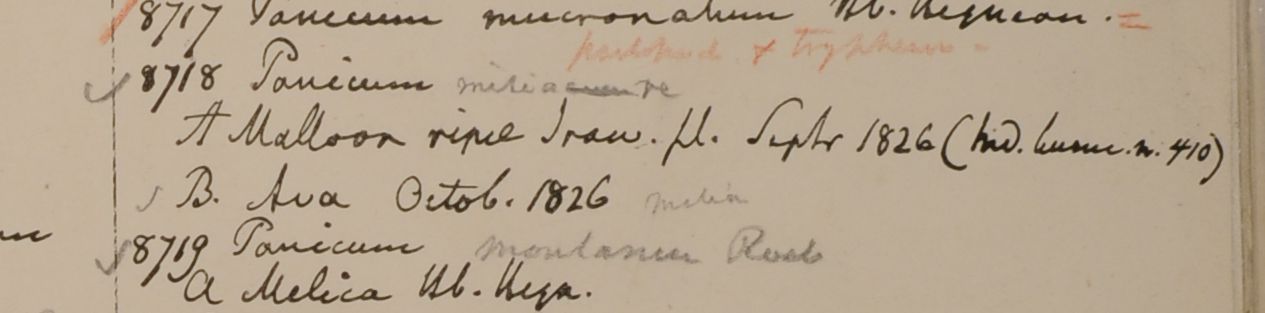 8717 Panicum mucronatum Hb. Heynean. =
& tryphern =
8718 Panicum miliacumre
A Malloon ripæ Iraw. fl. Septr 1826 (hd. burm. n. 410)
B. Ava Octob. 1826 milia
8719 Panicum montanum Roxb
a Melica Hb. Heyn.